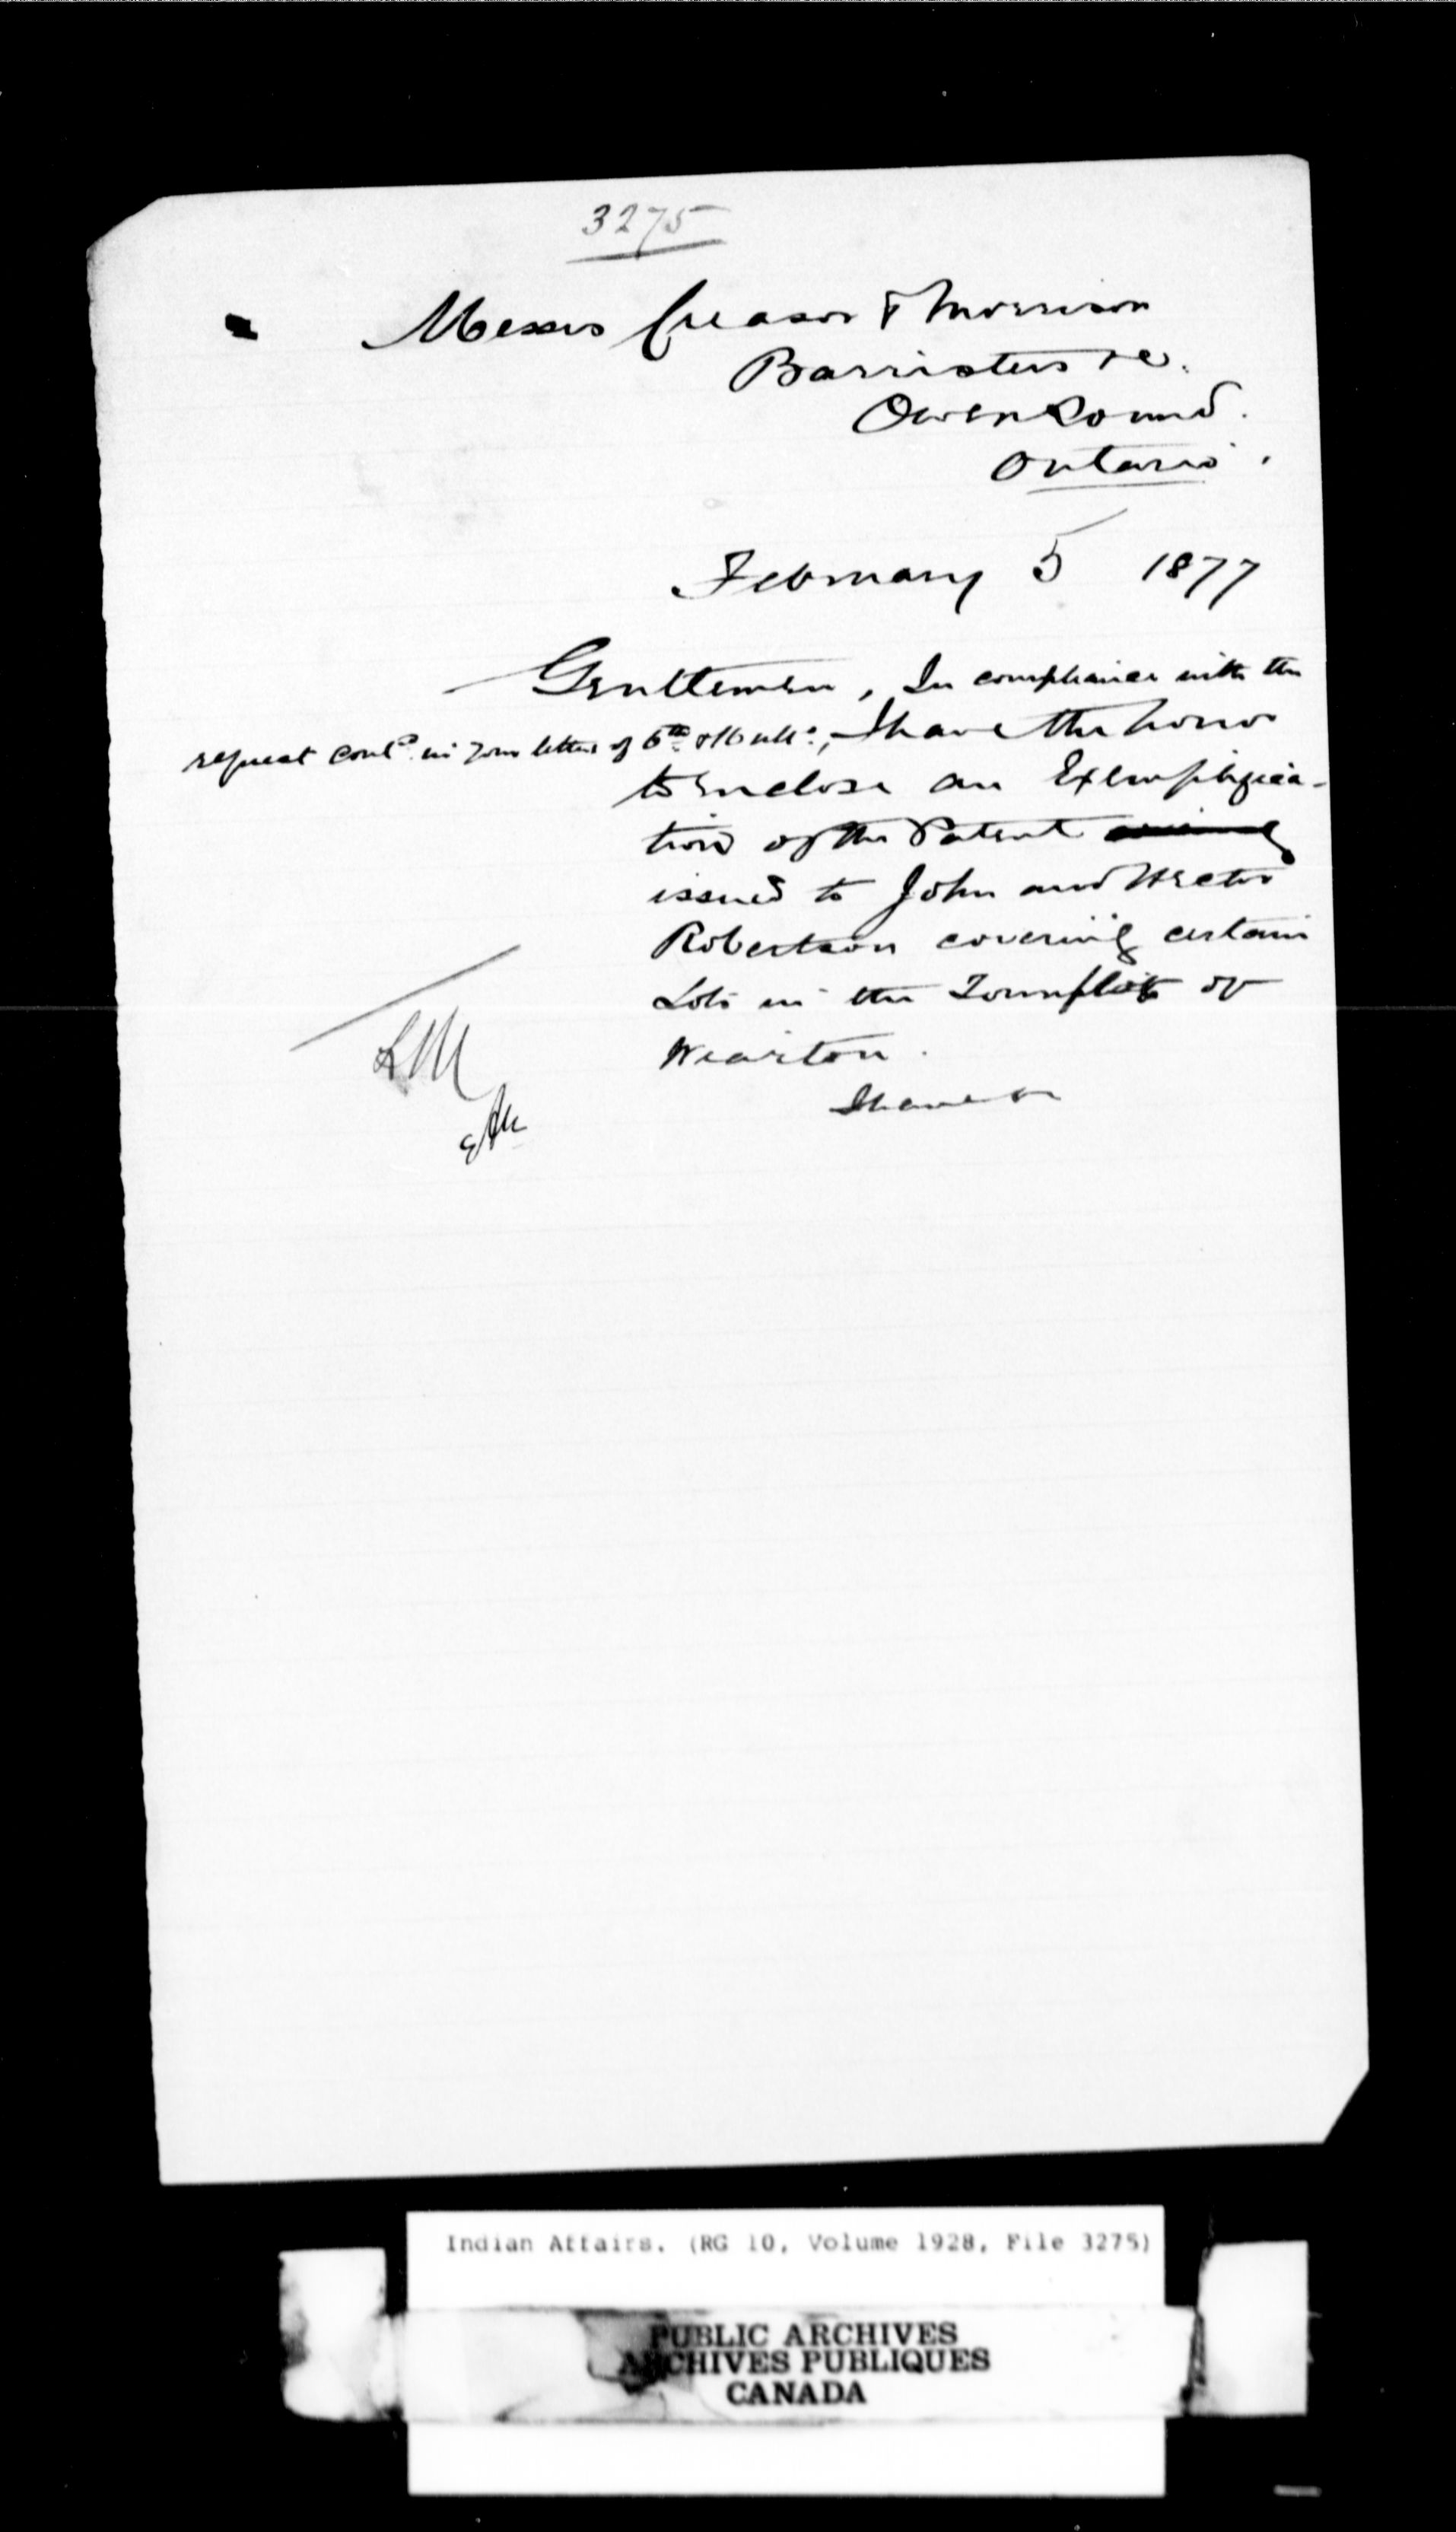 3275
Messrs Creasor & Morrison
Barristers &c.
Owen Sound.
Ontario.
February 5 1877
Gentlemen, In compliance with the
request cont.d in your letter of 6th ulto., I have the honor
to enclose an Exemplifica-
tion of the Patent
issued to John and Hector
Robertson covering certain
Lots in the Townplot of
Wiarton.
I have &c
LM
Indian Affairs. (RG 10, Volume 1928, File 3275)
PUBLIC ARCHIVES
ARCHIVES PUBLIQUES
CANADA